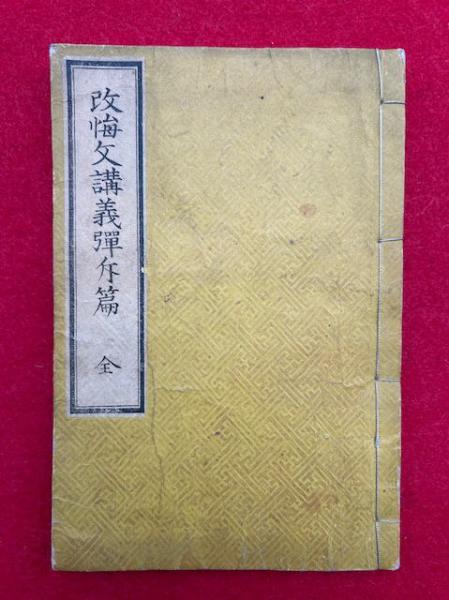 改悔文講義彈斥篇 全